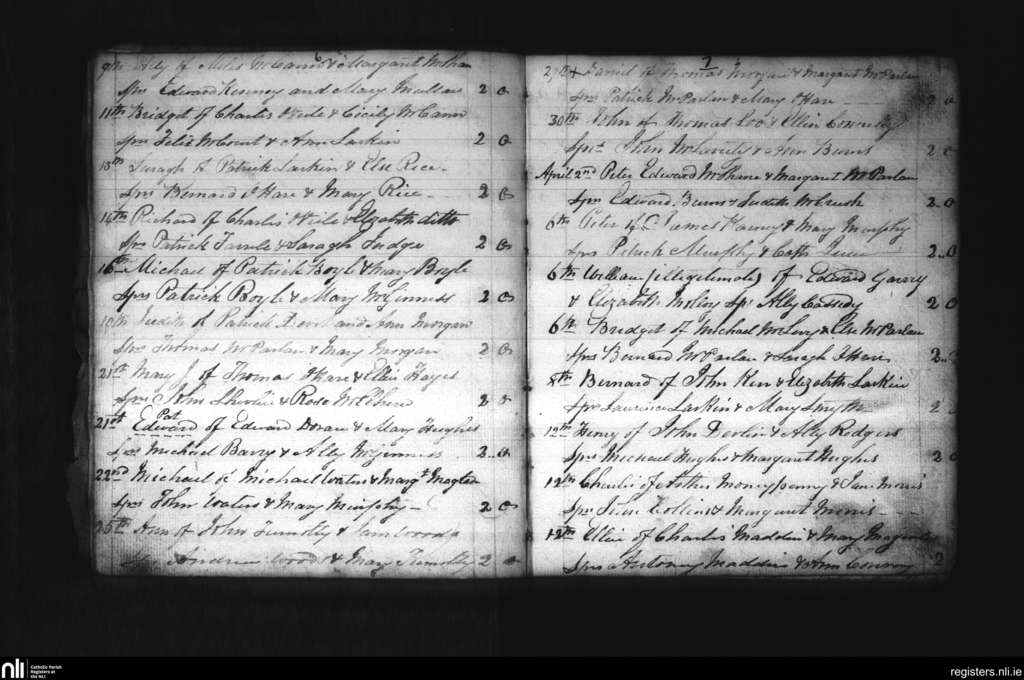 6
9th Ally of Miles McCann & Margaret
Sprs Edward Kenney and Mary Mallon 2 0
11th Bridget of Charles Neile & Cicily McCann
Sprs Felix McCourt & Ann Larkin 2 0
13th Saragh of Patrick Larkin & Else Rice
Sprs Bernard OHare & Mary Rice 2 0
14th Richard of Charles Neile & Elizabeth ditto
Sprs Patrick & Saragh Judge 2 0
16th Michael of Patrick Boyle & Mary Boyle
Sprs Patrick Boyle & Mary McGinness 2 0
Judith of Patrick and Ann Morgan
Sprs Thomas McParlan & Mary Morgan 2 0
21st Mary J. of Thomas OHare & Ellin Hayes
Sprs John & Rose 2 0
Pat
21st Edward of Edward Doran & Mary Hughes
Sprs Michael Barry & Ally McGinness 2..0
22nd Michael of Michael Waters & Margt
Sprs John Waters & Mary Murphy 2 0
25th Ann of John Tumilty & Jane Woods
Sprs Andrew Woods & Mary Tumilty 2 0
7
29th Daniel of Thomas Morgan & Margaret McParlan
Sprs Patrick McParlan & Mary OHare 2 0
30th John of Thomas & Ellin Connolly
Sprs John & Ann Burns 2 0
April 2nd Peter Edward McShane & Margaret McParlan
Sprs Edward Burns & Judith 2..0
6th Peter of James & Mary Murphy
Sprs Patrick Murphy & Cath 2..0
6th William (illegitimate) of Edward Garvey
& Elizabeth Sprs Ally Cassidy 2 0
6th Bridget of Michael & Else McParlan
Sprs Bernard McParlan & Saragh OHare 2..
8th Bernard of John Kerr & Elizabeth Larkin
Sprs Laurence Larkin & Mary Smyth 2
12th Henry of John Devlin & Ally Rodgers
Sprs Michael Hughes & Margaret Hughes 2 0
12th Charles of Arthur Moneypenny & Jane Morris
Sprs Collins & Margaret Morris
12th Ellin of Charles Maddin & Mary
Sprs Antony Maddin & Ann Conroy 2
nli
Catholic Parish
Registers at
the NLI
registers.nli.ie